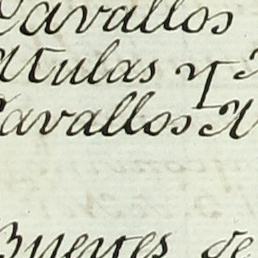 Cavallos
Mulas y
Cavallos
Bueyes de